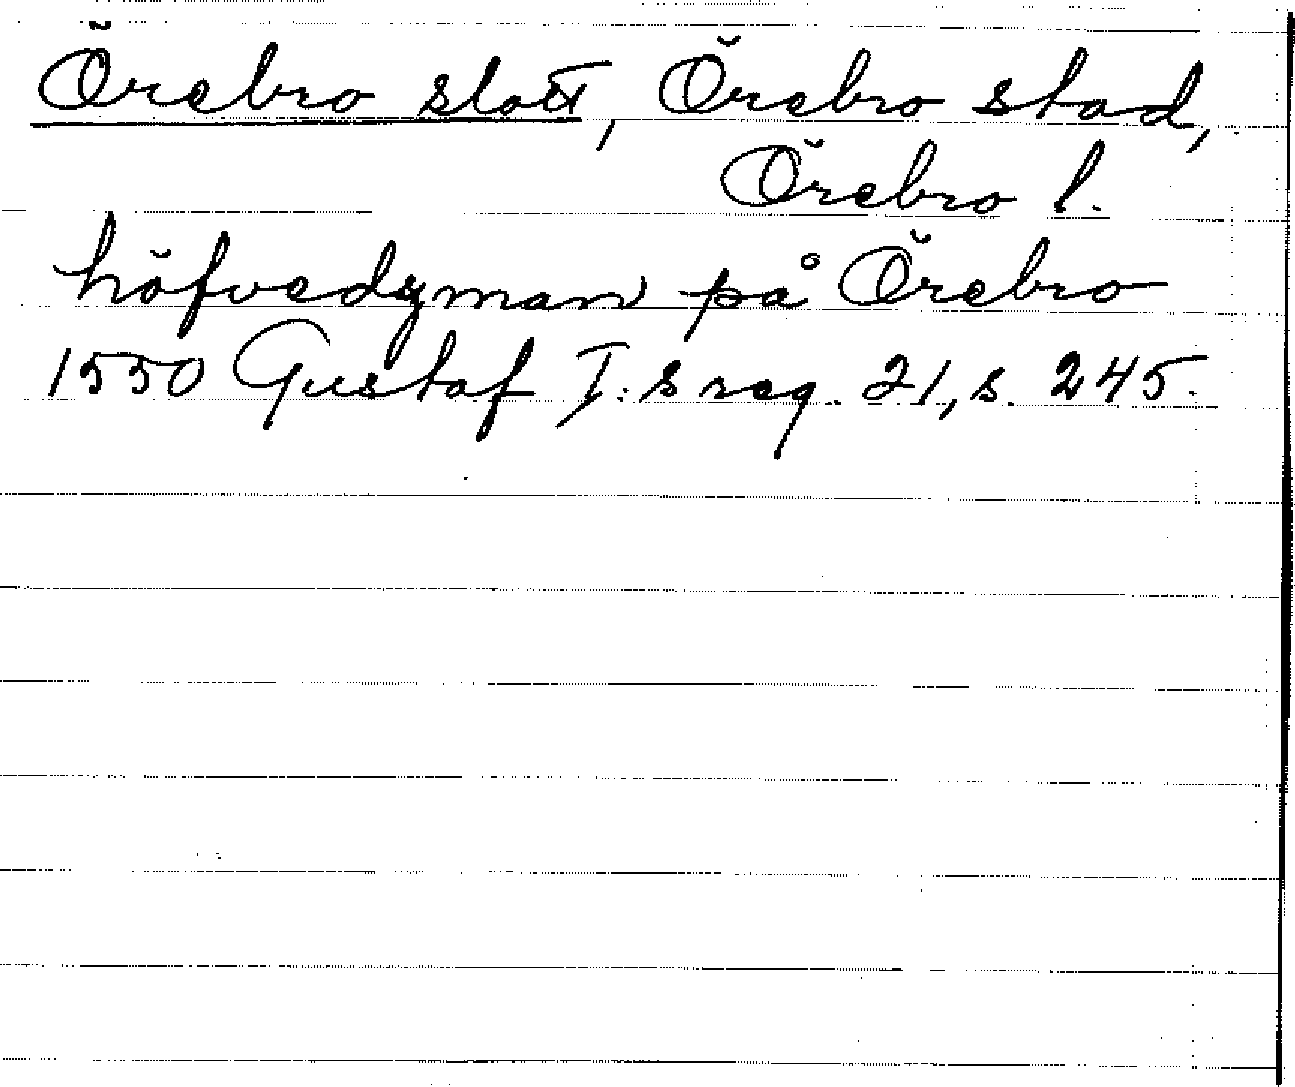 Örebro slott, Örebro stad,
Örebro l.
höfvedzman på Örebro
1550 Gustaf I:s reg. 21, s. 245.